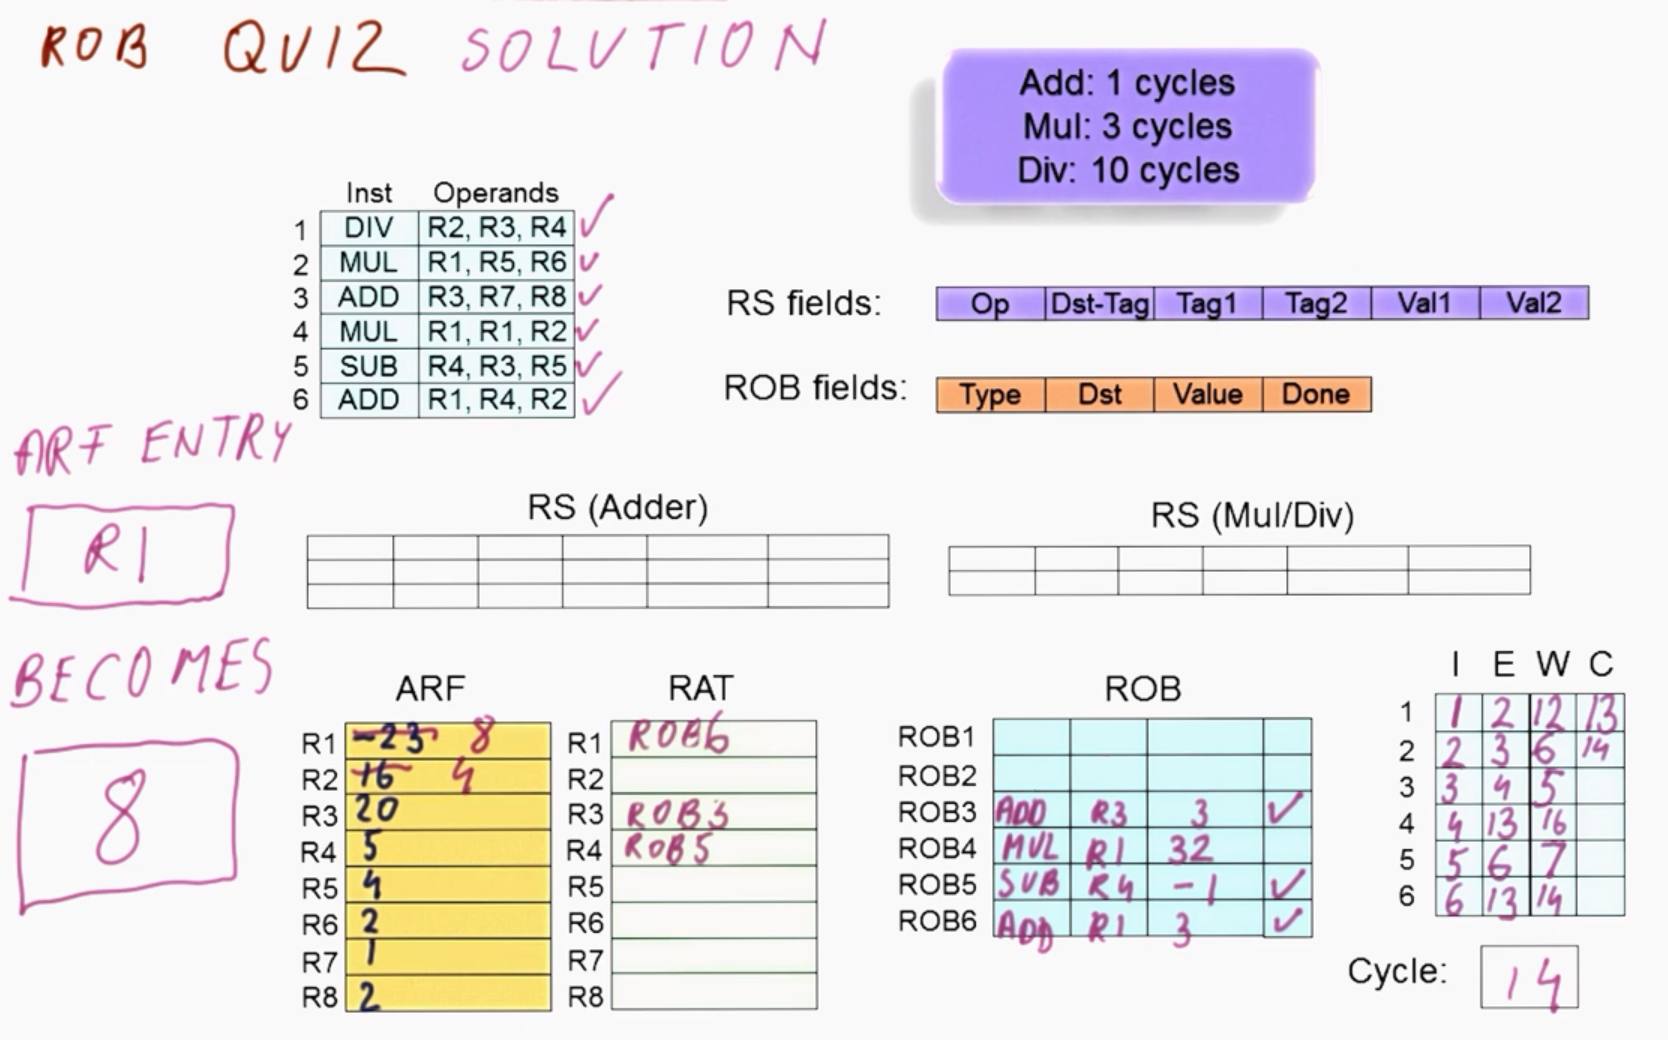 ROB QUIZ SOLUTION
Add: 1 cycles
Mul: 3 cycles
Div: 10 cycles
Inst Operands
1 DIV R2, R3, R4 ✓
2 MUL R1, R5, R6 ✓
3 ADD R3, R7, R8 ✓
4 MUL R1, R1, R2 ✓
5 SUB R4, R3, R5 ✓
6 ADD R1, R4, R2 ✓
RS fields: Op Dst-Tag Tag1 Tag2 Val1 Val2
ROB fields: Type Dst Value Done
ARF ENTRY
R1
BECOMES
8
RS (Adder)
RS (Mul/Div)
ARF
R1 -23 8
R2 16 4
R3 20
R4 5
R5 4
R6 2
R7 1
R8 2
RAT
R1 ROB6
R2
R3 ROB3
R4 ROB5
R5
R6
R7
R8
ROB
ROB1
ROB2
ROB3 ADD R3 3 ✓
ROB4 MUL R1 32
ROB5 SUB R4 -1 ✓
ROB6 ADD R1 3 ✓
I E W C
1 1 2 12 13
2 2 3 6 14
3 3 4 5
4 4 13 16
5 5 6 7
6 6 13 14
Cycle: 14